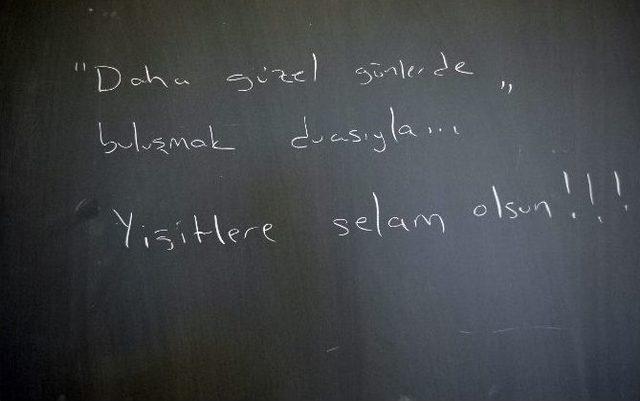 "Daha güzel günlerde „
buluşmak duasıyla...
Yiğitlere selam olsun!!!